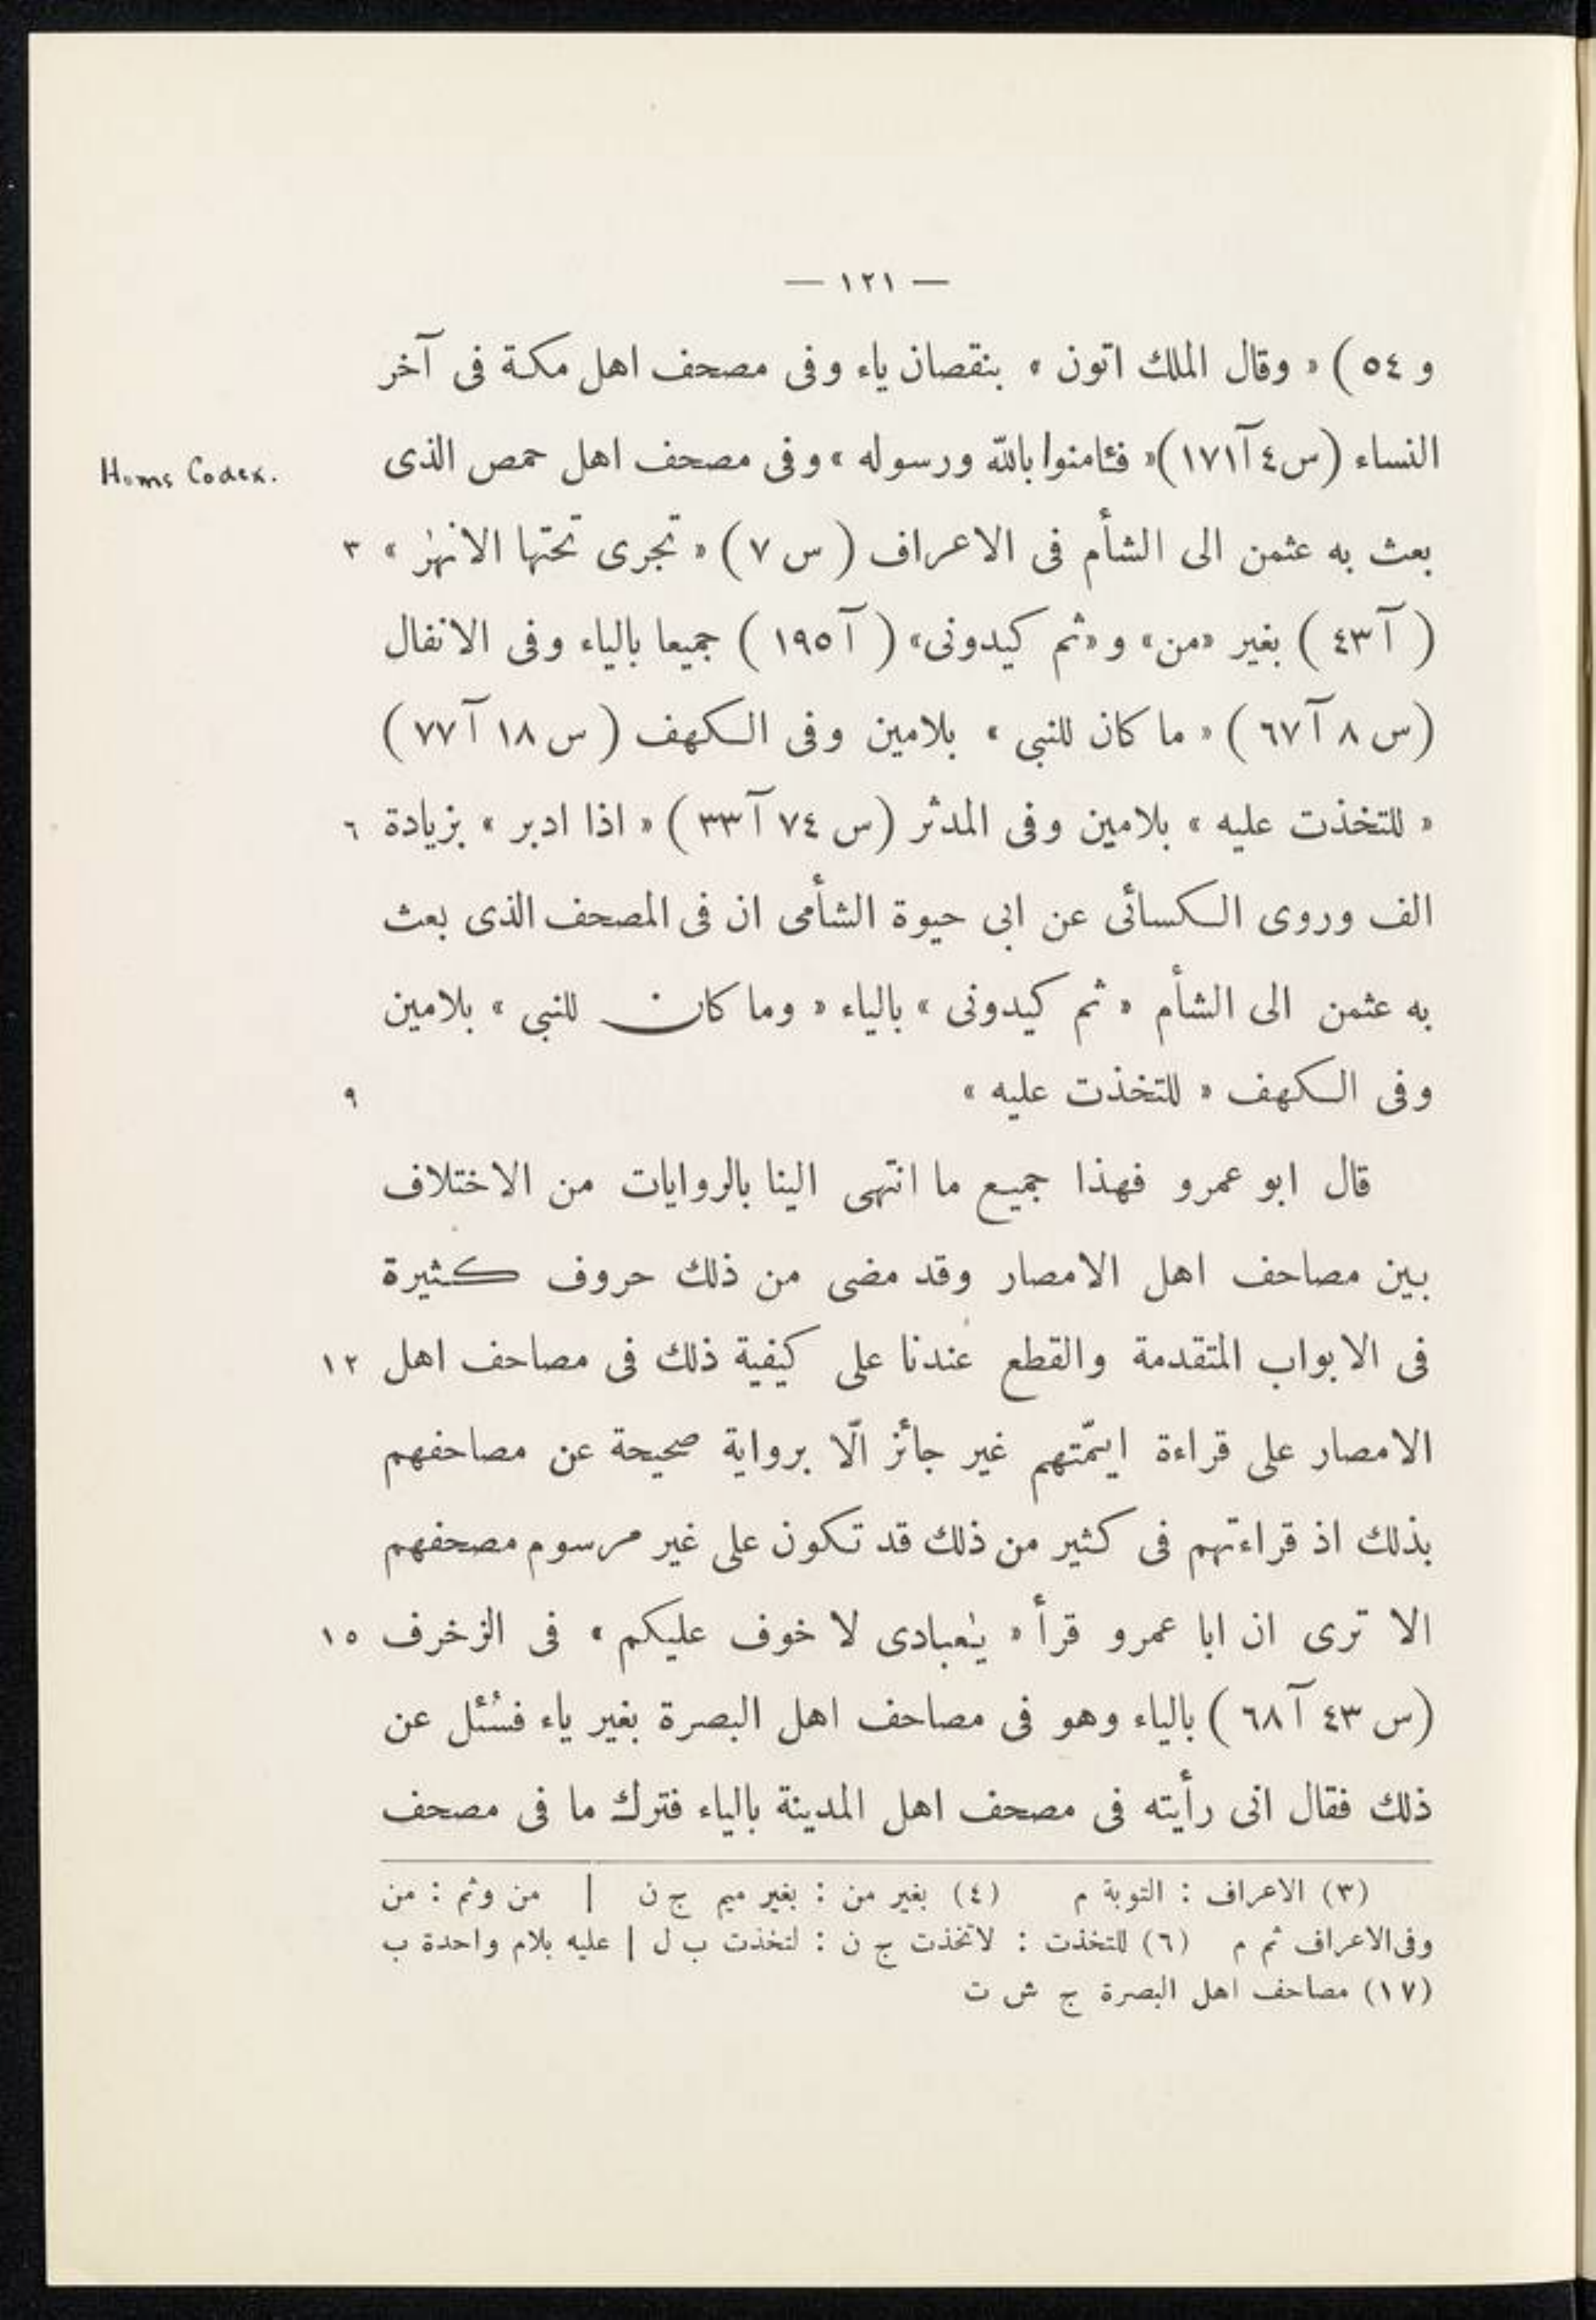 — ١٢١ —
و ٥٤ ) « وقال الملك اتون » بنقصان ياء وفى مصحف اهل مكة فى آخر
النساء (س٤ آ١٧١) « فـٔامنوا بالله ورسوله » وفى مصحف اهل حمص الذى
Homs Codex.
بعث به عثمن الى الشأم فى الاعراف ( س ٧ ) « تجرى تحتها الانهٰر » ٣
( آ ٤٣ ) بغير «من» و «ثم كيدونى» ( آ ١٩٥ ) جميعا بالياء وفى الانفال
(س ٨ آ ٦٧ ) « ما كان للنبى » بلامين وفى الكهف ( س ١٨ آ ٧٧ )
« للتخذت عليه » بلامين وفى المدثر (س ٧٤ آ ٣٣ ) « اذا ادبر » بزيادة ٦
الف وروى الكسائى عن ابى حيوة الشأمى ان فى المصحف الذى بعث
به عثمن الى الشأم « ثم كيدونى » بالياء « وما كان للنبى » بلامين
وفى الكهف « للتخذت عليه » ٩
قال ابو عمرو فهذا جميع ما انتهى الينا بالروايات من الاختلاف
بين مصاحف اهل الامصار وقد مضى من ذلك حروف كثيرة
فى الابواب المتقدمة والقطع عندنا على كيفية ذلك فى مصاحف اهل ١٢
الامصار على قراءة ايمّتهم غير جائز الّا برواية صحيحة عن مصاحفهم
بذلك اذ قراءتهم فى كثير من ذلك قد تكون على غير مرسوم مصحفهم
الا ترى ان ابا عمرو قرأ « يٰعبادى لا خوف عليكم » فى الزخرف ١٥
(س ٤٣ آ ٦٨ ) بالياء وهو فى مصاحف اهل البصرة بغير ياء فسُئل عن
ذلك فقال انى رأيته فى مصحف اهل المدينة بالياء فترك ما فى مصحف
(٣) الاعراف : التوبة م (٤) بغير من : بغير ميم ج ن | من وثم : من
وفى الاعراف ثم م (٦) للتخذت : لاتخذت ج ن : لتخذت ب ل | عليه بلام واحدة ب
(١٧) مصاحف اهل البصرة ج ش ت